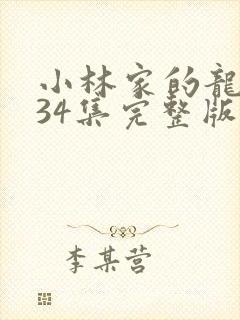 小林家的龍
34集完整版
李某营